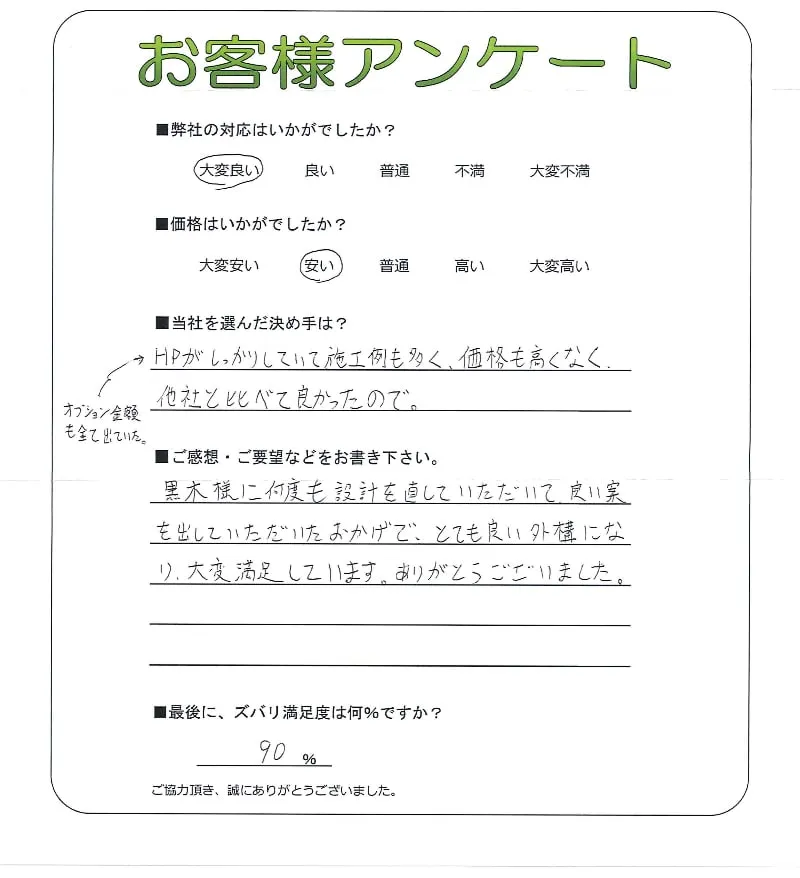 お客様アンケート
■弊社の対応はいかがでしたか？
大変良い 良い 普通 不満 大変不満
■価格はいかがでしたか？
大変安い 安い 普通 高い 大変高い
■当社を選んだ決め手は？
HPがしっかりしていて施工例も多く、価格も高くなく、
他社と比べて良かったので。
オプション金額
も全て出ていた。
■ご感想・ご要望などをお書き下さい。
黒木様に何度も設計を直していただいて、良い案
を出していただいたおかげで、とても良い外構にな
り、大変満足しています。ありがとうございました。
■最後に、ズバリ満足度は何％ですか？
90 ％
ご協力頂き、誠にありがとうございました。